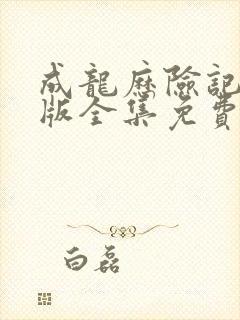 成龍歷險記
版全集免費
白磊